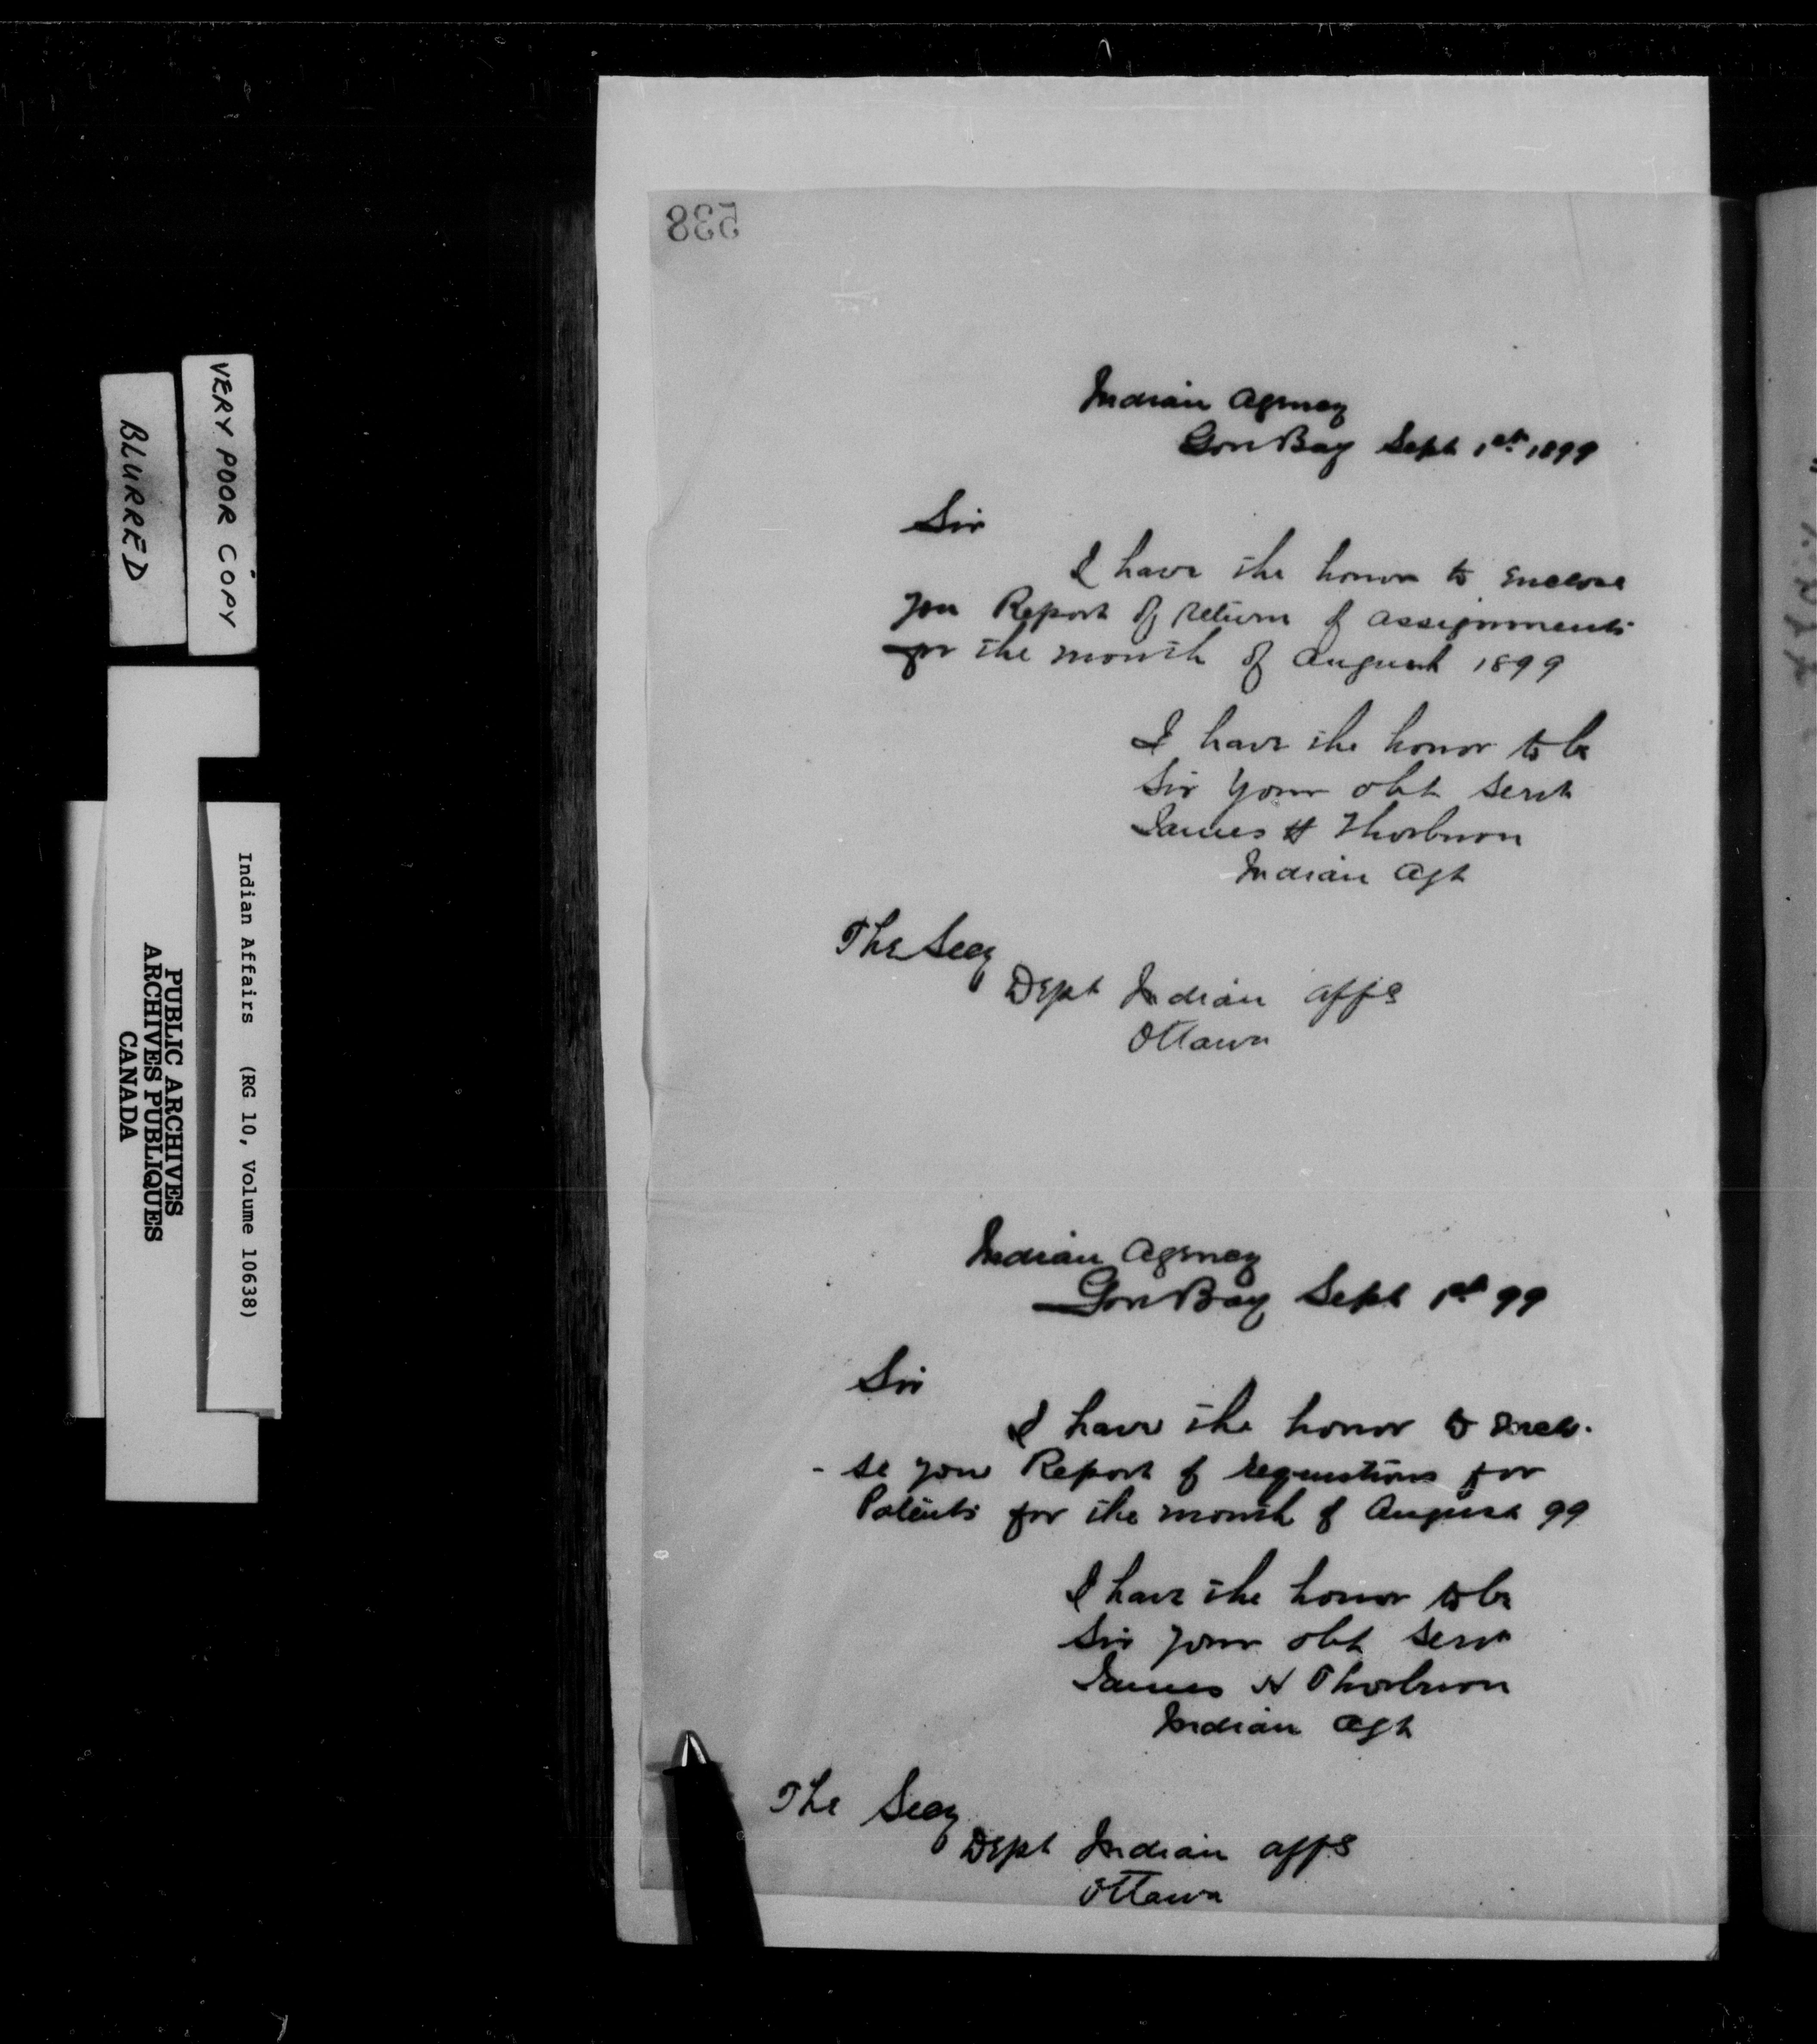 VERY POOR COPY
BLURRED
Indian Affairs (RG 10, Volume 10638)
PUBLIC ARCHIVES
ARCHIVES PUBLIQUES
CANADA
538
Indian Agency
Gore Bay Sept 1st 1899
Sir
I have the honor to enclose
you Report of return of assignments
for the month of August 1899
I have the honor to be
Sir your obt servt
James H Thorburn
Indian Agt
The Secy
Dept Indian Affs
Ottawa
Indian Agency
Gore Bay Sept 1st 99
Sir
I have the honor to enclo-
- se you Report of requisitions for
Patents for the month of August 99
I have the honor to be
Sir your obt servt
James H Thorburn
Indian Agt
The Secy
Dept Indian Affs
Ottawa